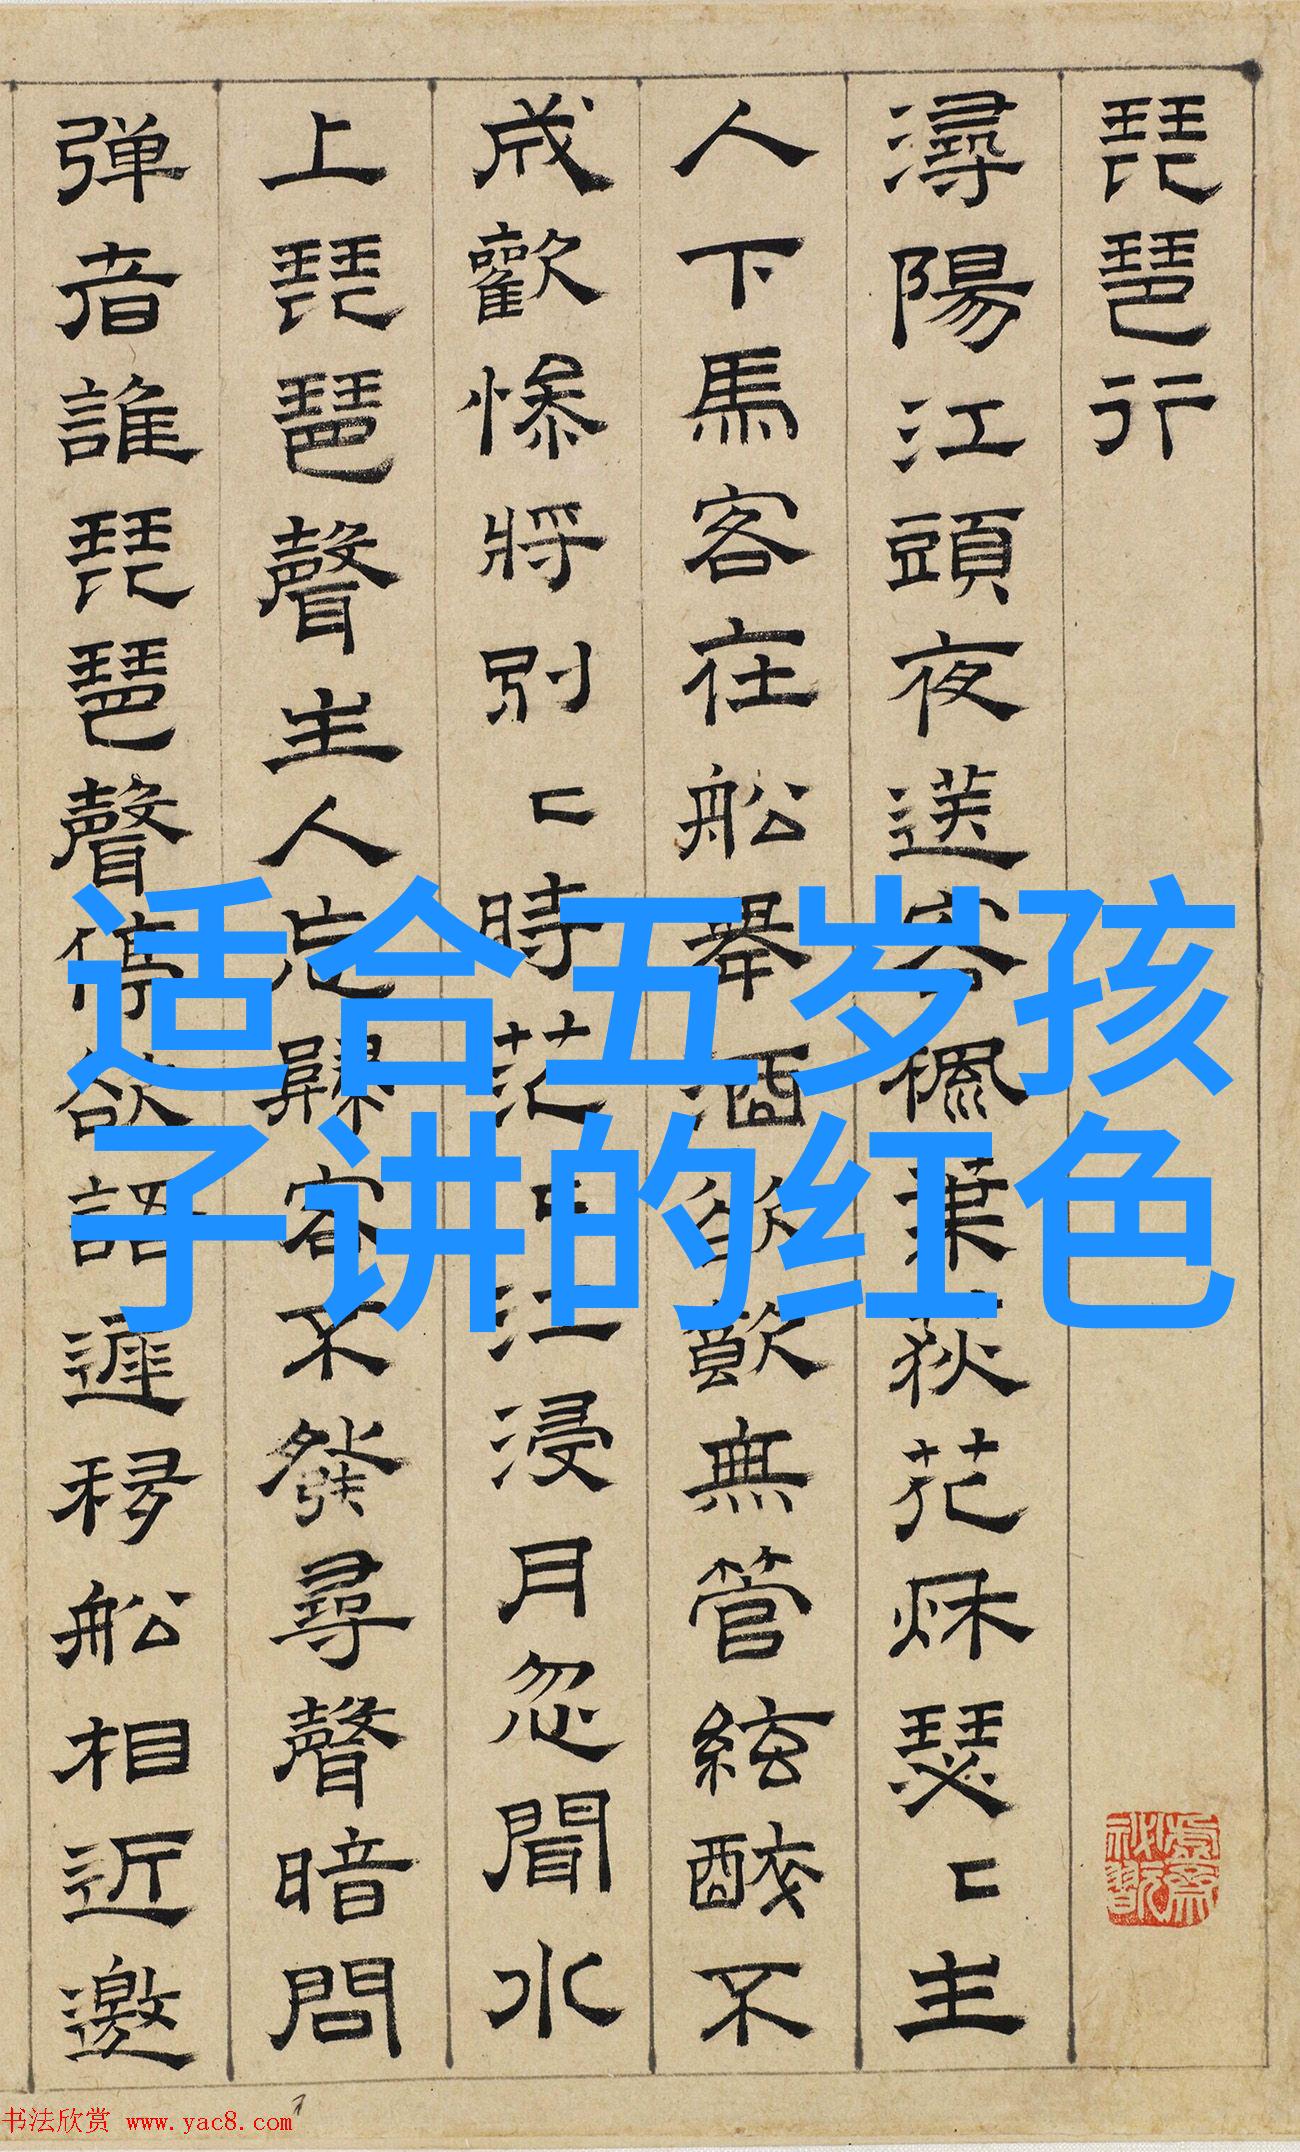 琵琶行
潯陽江頭夜送客楓葉荻花秋瑟〻主
人下馬客在船舉酒欲飲無管絃醉不
成歡慘將別〻時茫〻江浸月忽聞水
上琵琶聲主人忘歸客不發尋聲暗問
彈者誰琵琶聲停欲語遲移船相近邀
适合五岁孩
子讲的红色
书法欣赏 www.yac8.com